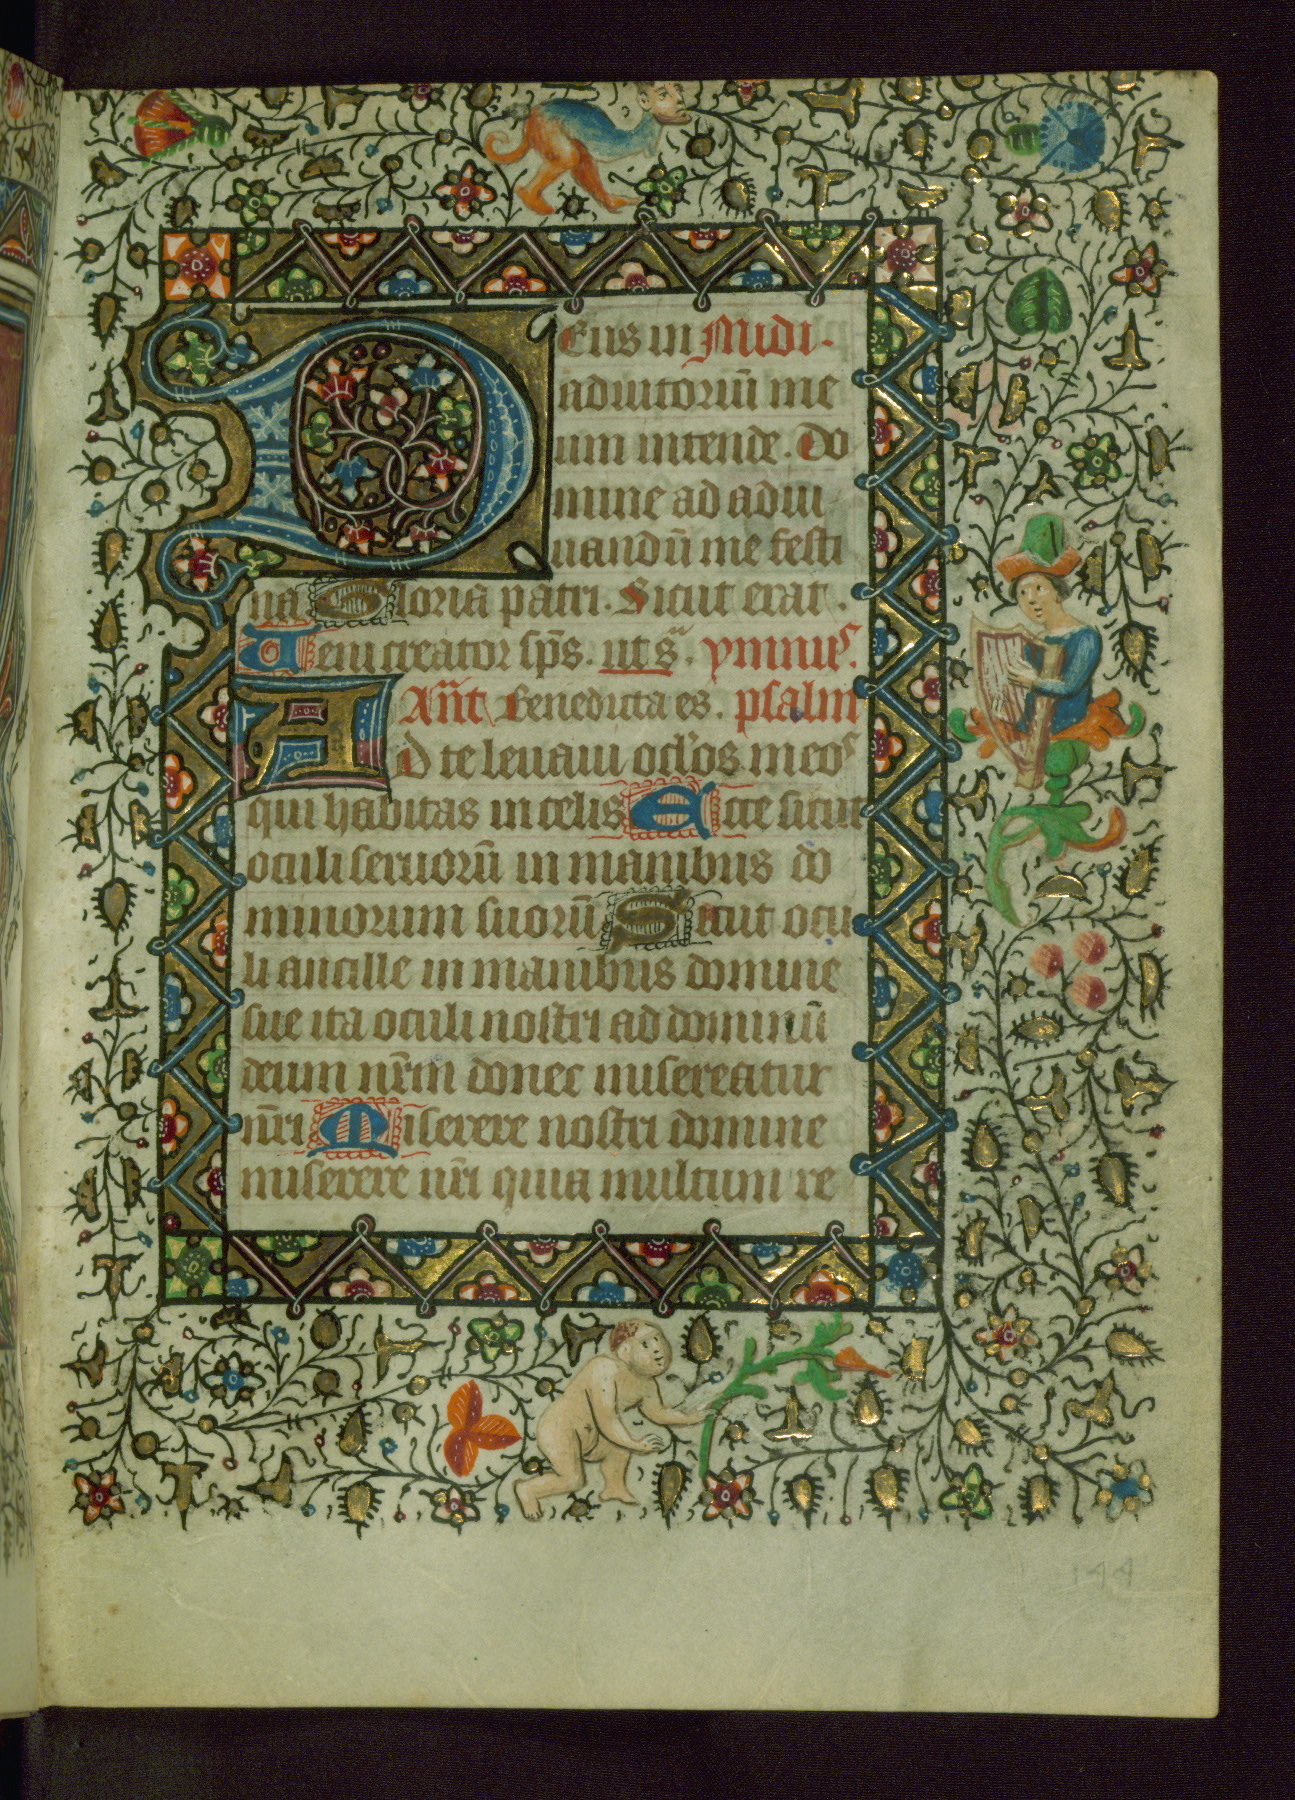 Deus in Midi.
adiutoriū me
um intende. Do
mine ad adiu
uandū me festi
na Gloria patri. Sicut erat.
Veni creator sp̄s. ut sͣ. ymnus.
Ant̄ Benedicta es. psalm
Ad te leuaui oc̄los meos
qui habitas in celis Ecce sicut
oculi seruorū in manibus do
minorum suorū Sicut ocu
li ancille in manibus domine
sue ita oculi nostri ad dominū
deum nr̄m donec misereatur
nr̄i Miserere nostri domine
miserere nr̄i quia multum re
144